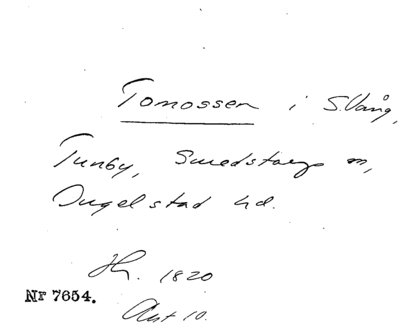 Tomossen i S. Vång,
Tunby, Smedstorps sn,
Ingelstad hd.
Hh. 1820
Nr 7654.
Akt 10.